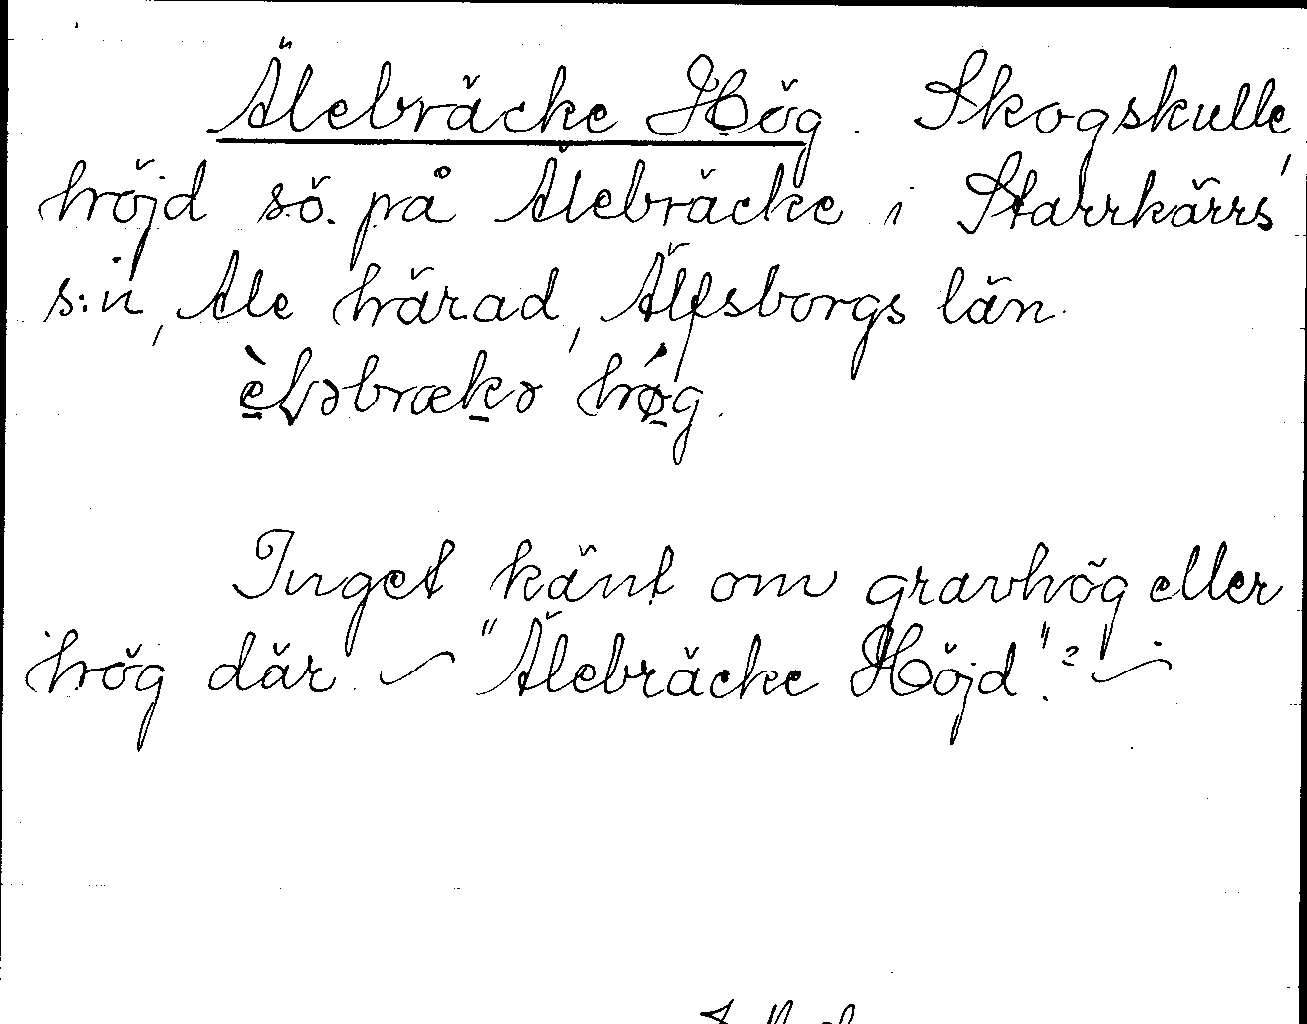 Älebräcke Hög. Skogskulle,
höjd sö. på Älebräcke i Starrkärrs
s:n, Ale härad, Älfsborgs län.
hǿg.
Inget känt om gravhög eller
hög där. — "Älebräcke Höjd"? —